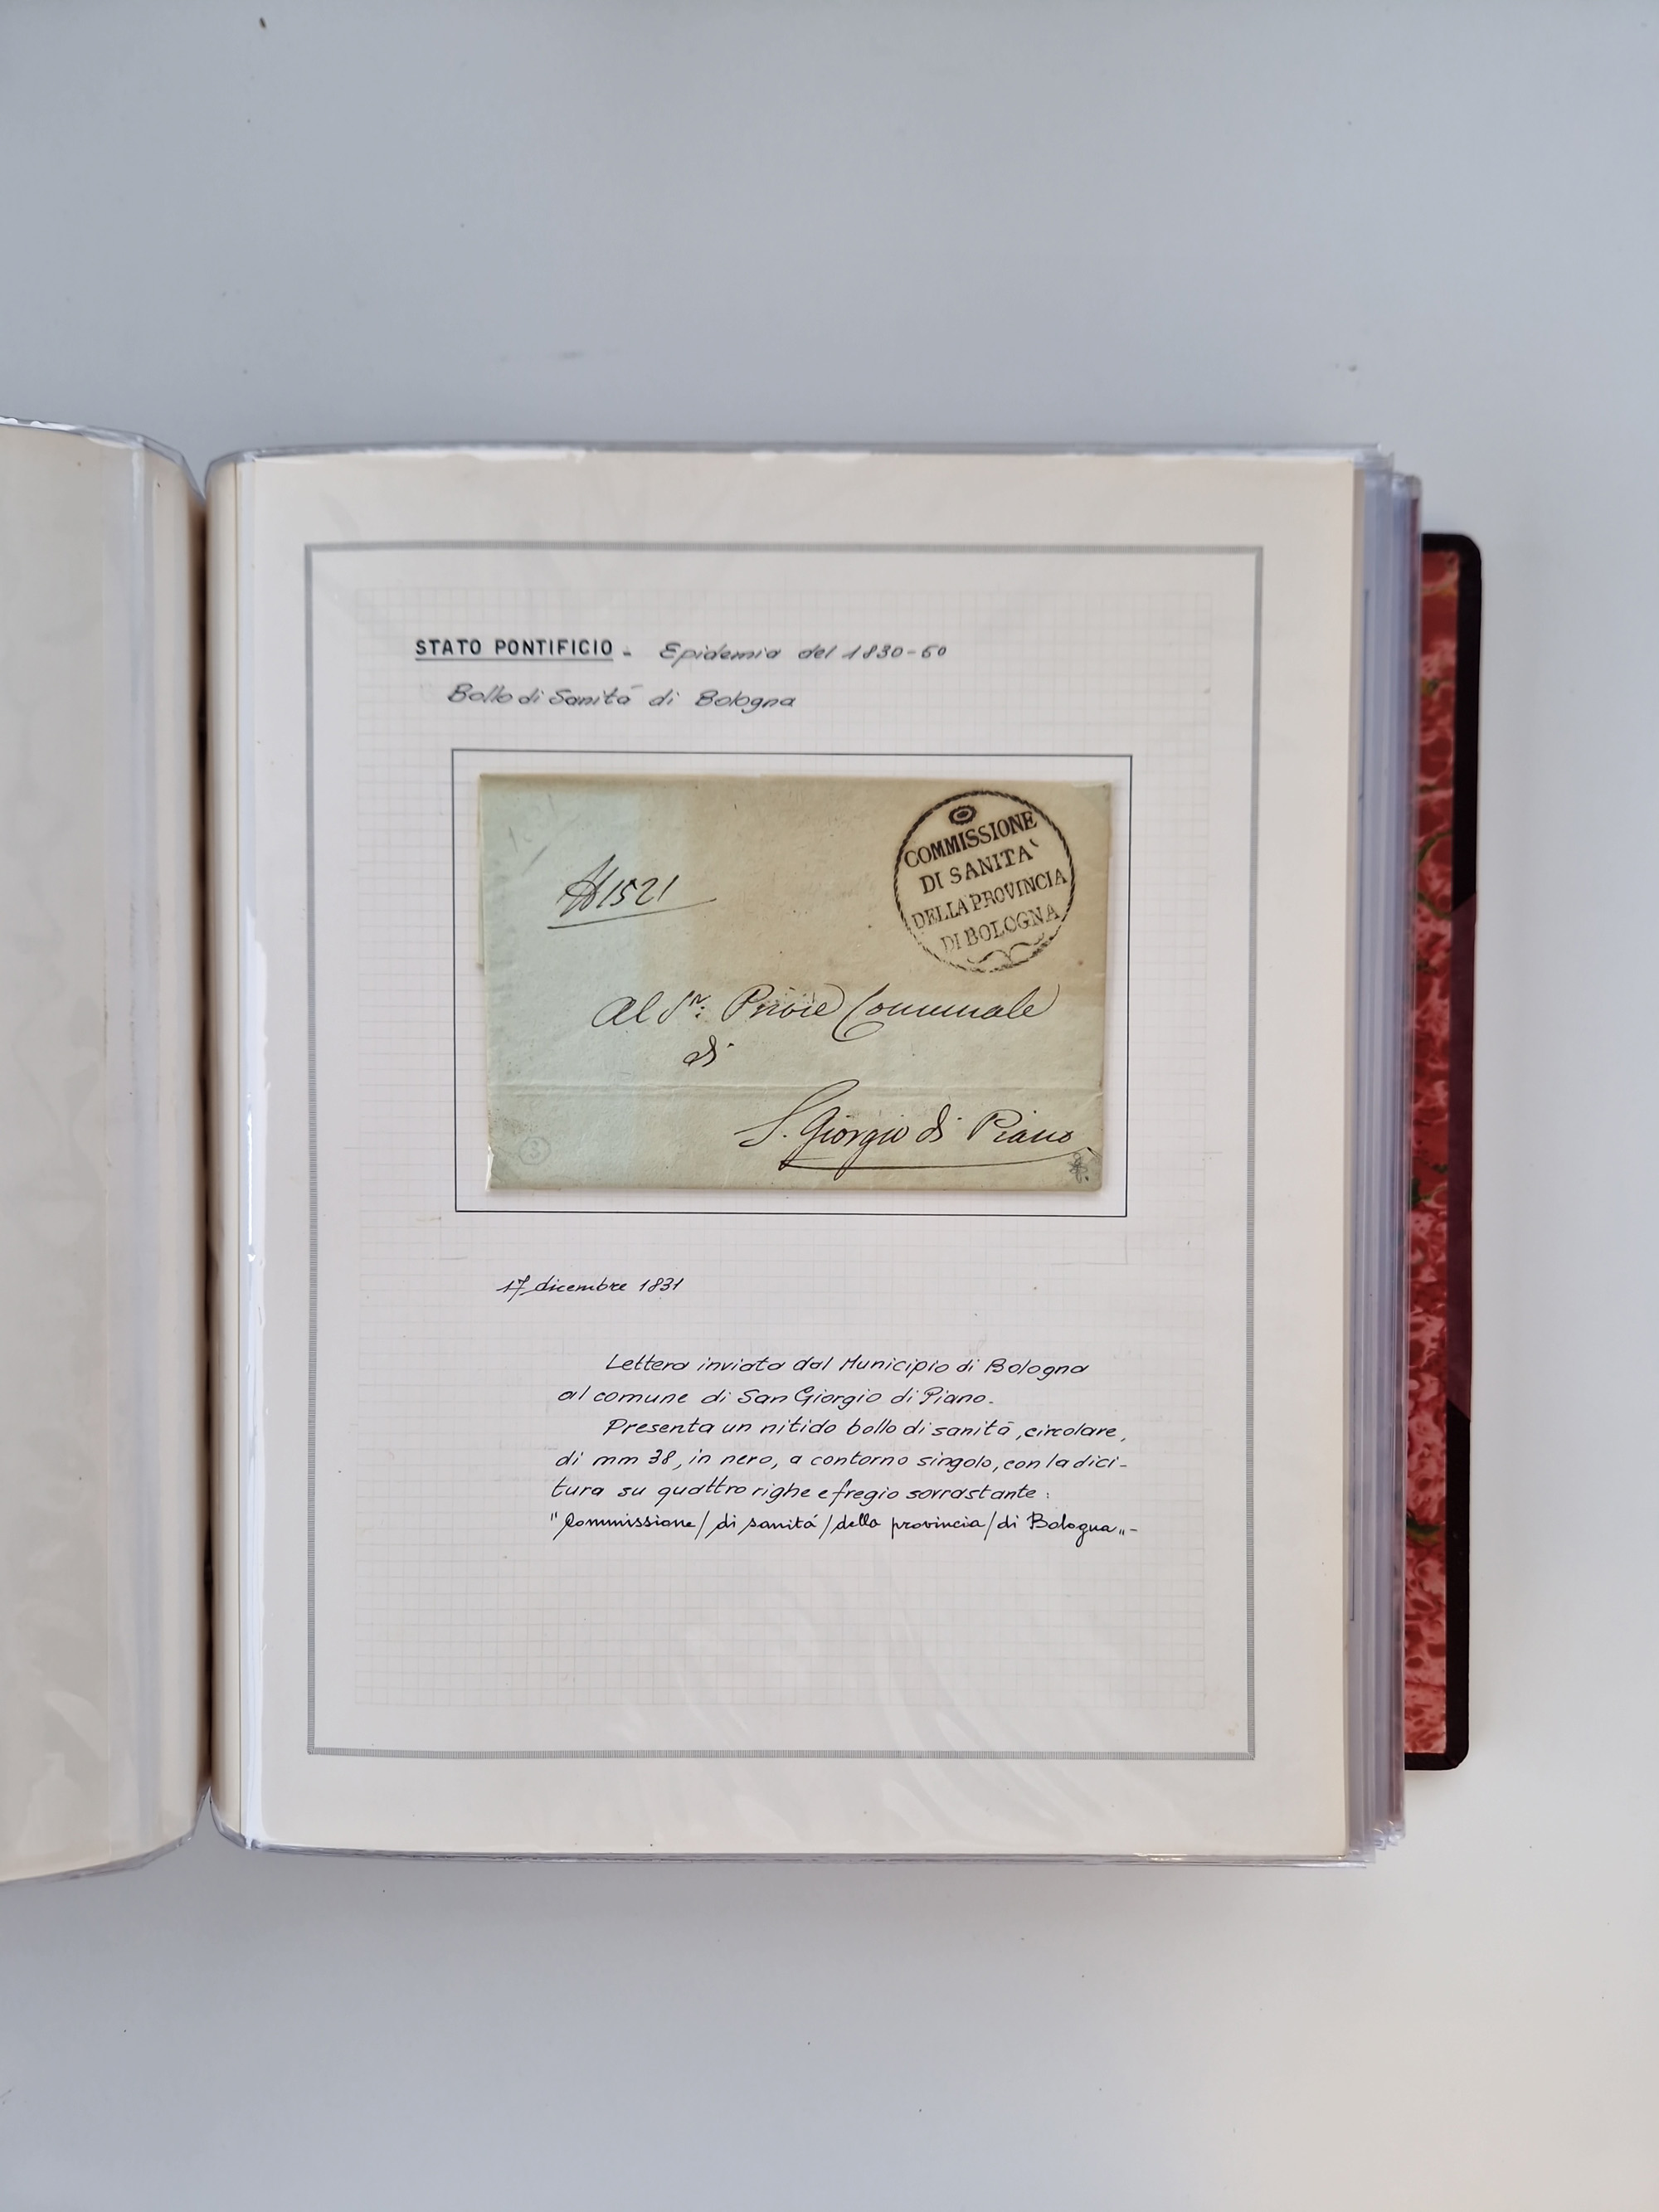 STATO PONTIFICIO - Epidemia del 1830-60
Bollo di Sanità di Bologna
COMMISSIONE
DI SANITA'
DELLA PROVINCIA
DI BOLOGNA
1521
Al Sr: Priore Comunale
di
S. Giorgio di Piano
3
17 dicembre 1831
Lettera inviata dal Municipio di Bologna
al comune di San Giorgio di Piano.
Presenta un nitido bollo di sanità, circolare,
di mm 38, in nero, a contorno singolo, con la dici-
tura su quattro righe e fregio sovrastante:
"Commissione/di sanitá/della provincia/di Bologna„-